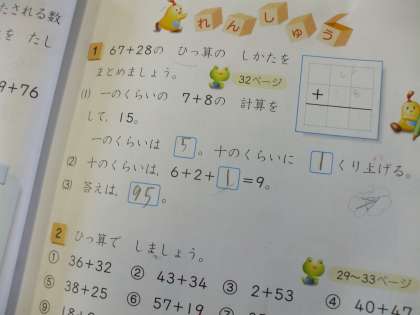 たされる数
を たし
9+76
れんしゅう
1 67+28の ひっ算の しかたを
まとめましょう。
32ページ
(1) 一のくらいの 7+8の 計算を
して、15。
一のくらいは 5。十のくらいに 1 くり上げる。
(2) 十のくらいは、6+2+1=9。
(3) 答えは、95。
+
2 ひっ算で しましょう。
29〜33ページ
① 36+32 ② 43+34 ③ 2+53 ④ 40+47
⑤ 38+25 ⑥ 57+19